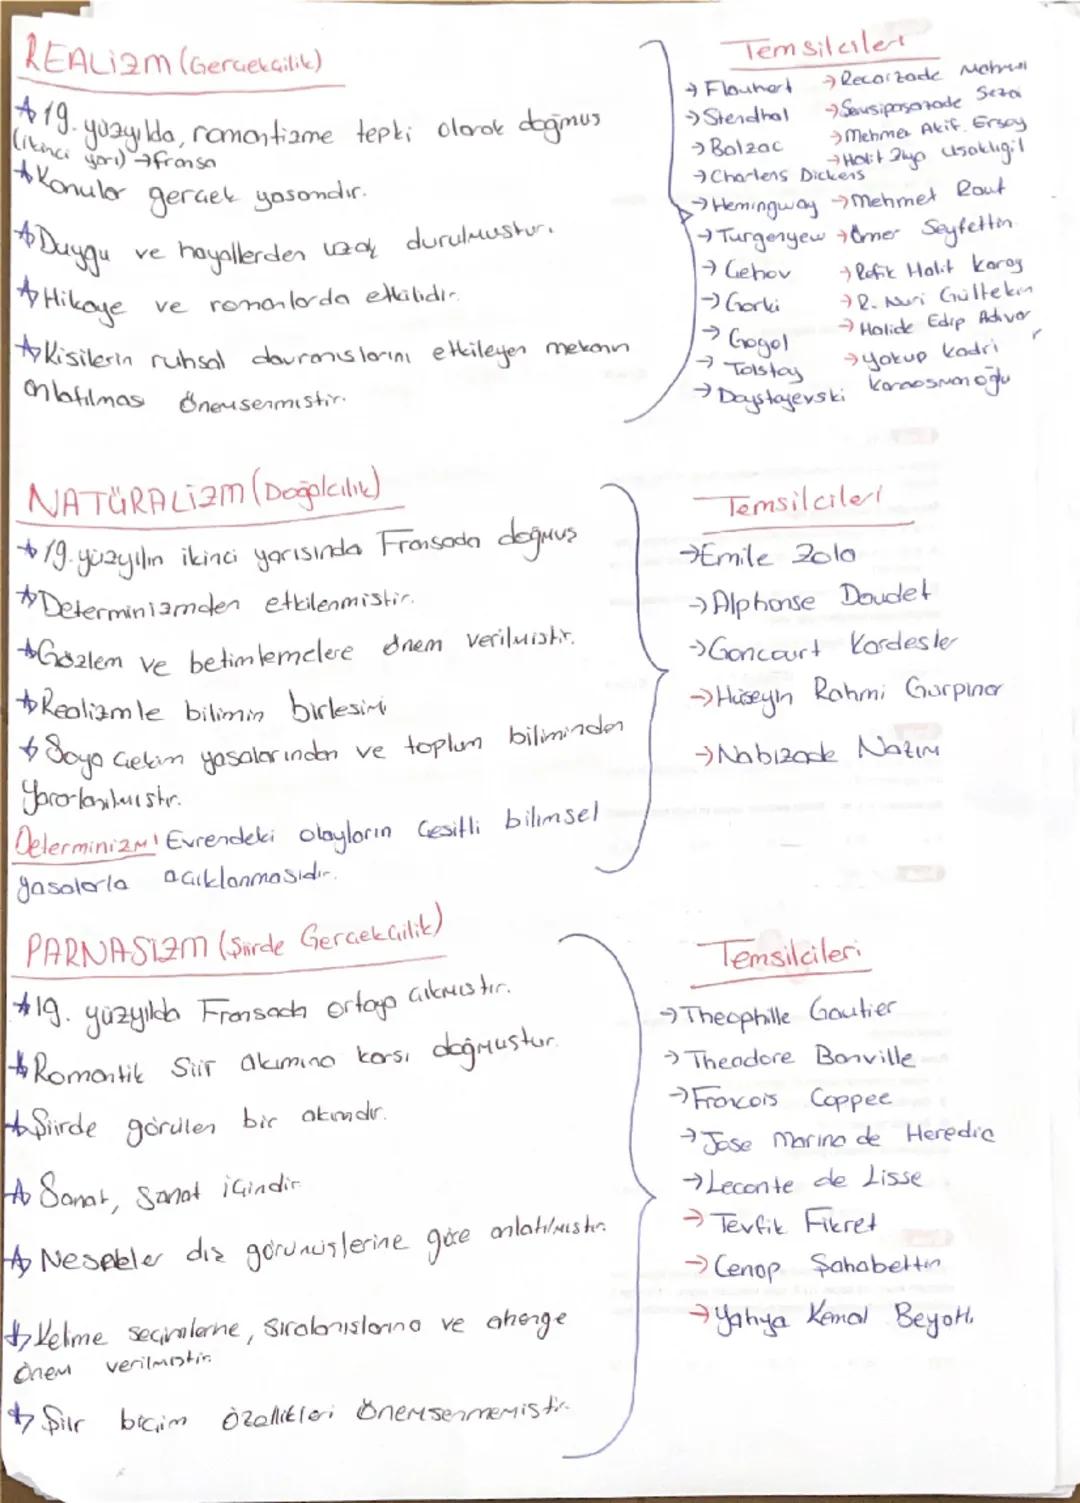 REALİZM (Gerçekçilik)
19. yüzyılda, romantizme tepki olarak doğmuş
(ikinci yarı) → fransa
Konular gerçek yaşamdır.
Duygu ve hayallerden uzak durulmuştur.
Hikaye ve romanlarda etkilidir.
Kişilerin ruhsal davranışlarını etkileyen mekanın
anlatılması önemsenmiştir.
Temsilcileri
→ Flauhert → Recaizade Mahmut
→ Stendhal → Samsipaşazade Sezai
→ Balzac → Mehmet Akif Ersoy
→ Charlens Dickens → Halit Ziya Uşaklıgil
→ Hemingway → Mehmet Rauf
→ Turgenyew → Ömer Seyfettin
→ Çehov → Refik Halit Karay
→ Gorki → R. Nuri Gültekin
→ Gogol → Halide Edip Adıvar
→ Tolstoy → Yakup Kadri
→ Doystoyevski Karaosmanoğlu
NATÜRALİZM (Doğalcılık)
19. yüzyılın ikinci yarısında Fransada doğmuş
Determinizmden etkilenmiştir.
Gözlem ve betimlemelere önem verilmiştir.
Realizmle bilimin birleşimi
Soya çekim yasalarından ve toplum biliminden
Yararlanılmıştır.
Determinizm: Evrendeki olayların çeşitli bilimsel
yasalarla açıklanmasıdır.
Temsilcileri
→ Emile Zola
→ Alphonse Daudet
→ Goncourt Kardeşler
→ Hüseyin Rahmi Gürpınar
→ Nabizade Nazım
PARNASİZM (Şiirde Gerçekçilik)
19. yüzyılda Fransada ortaya çıkmıştır.
Romantik Şiir akımına karşı doğmuştur.
Şiirde görülen bir akımdır.
Sanat, sanat içindir
Nesneler dış görünüşlerine göre anlatılmıştır.
Kelime seçimlerine, sıralanışlarına ve ahenge
önem verilmiştir.
Şiir biçim özellikleri önemsenmemiştir.
Temsilcileri
→ Theophille Gautier
→ Theodore Banville
→ Francois Coppee
→ Jose Marina de Heredia
→ Leconte de Lisse
→ Tevfik Fikret
→ Cenap Şahabettin
→ Yahya Kemal Beyatlı